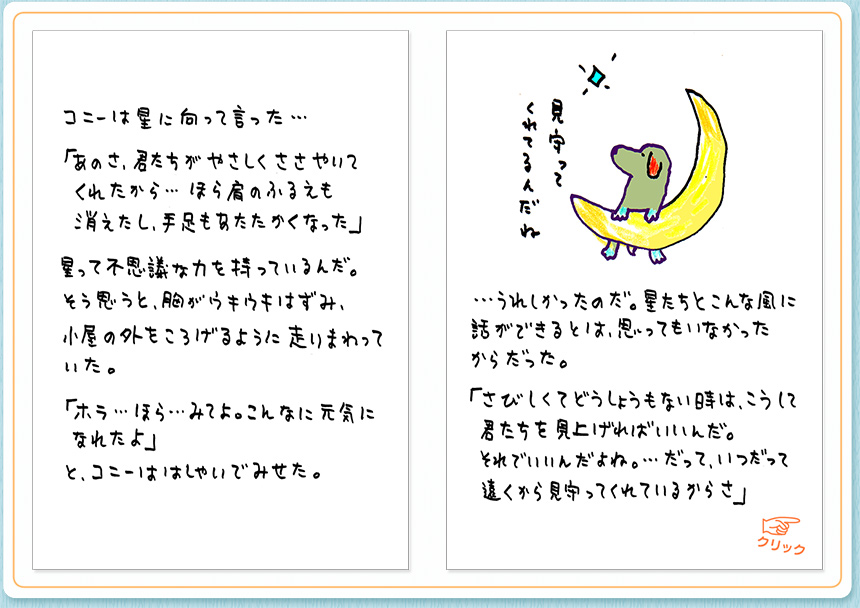 コニーは星に向って言った…
「あのさ、君たちが やさしくささやいて
くれたから… ほら肩のふるえも
消えたし、手足もあたたかくなった」
星って不思議な力を持っているんだ。
そう思うと、胸がウキウキはずみ、
小屋の外をころげるように走りまわって
いた。
「ホラ…ほら…みてよ。こんなに元気に
なれたよ」
と、コニーははしゃいでみせた。
見守って
くれてるんだね
…うれしかったのだ。星たちとこんな風に
話ができるとは、思ってもいなかった
からだった。
「さびしくてどうしようもない時は、こうして
君たちを見上げればいいんだ。
それでいいんだよね。…だって、いつだって
遠くから見守ってくれているからさ」
クリック